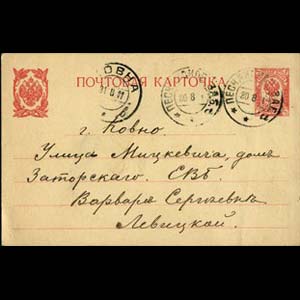 ПОЧТОВАЯ КАРТОЧКА
КОВНА
г. Ковно
Улица Мицкевича, домъ
Заторскаго. СВБ.
Варваре Сергѣевне
Левицкой.